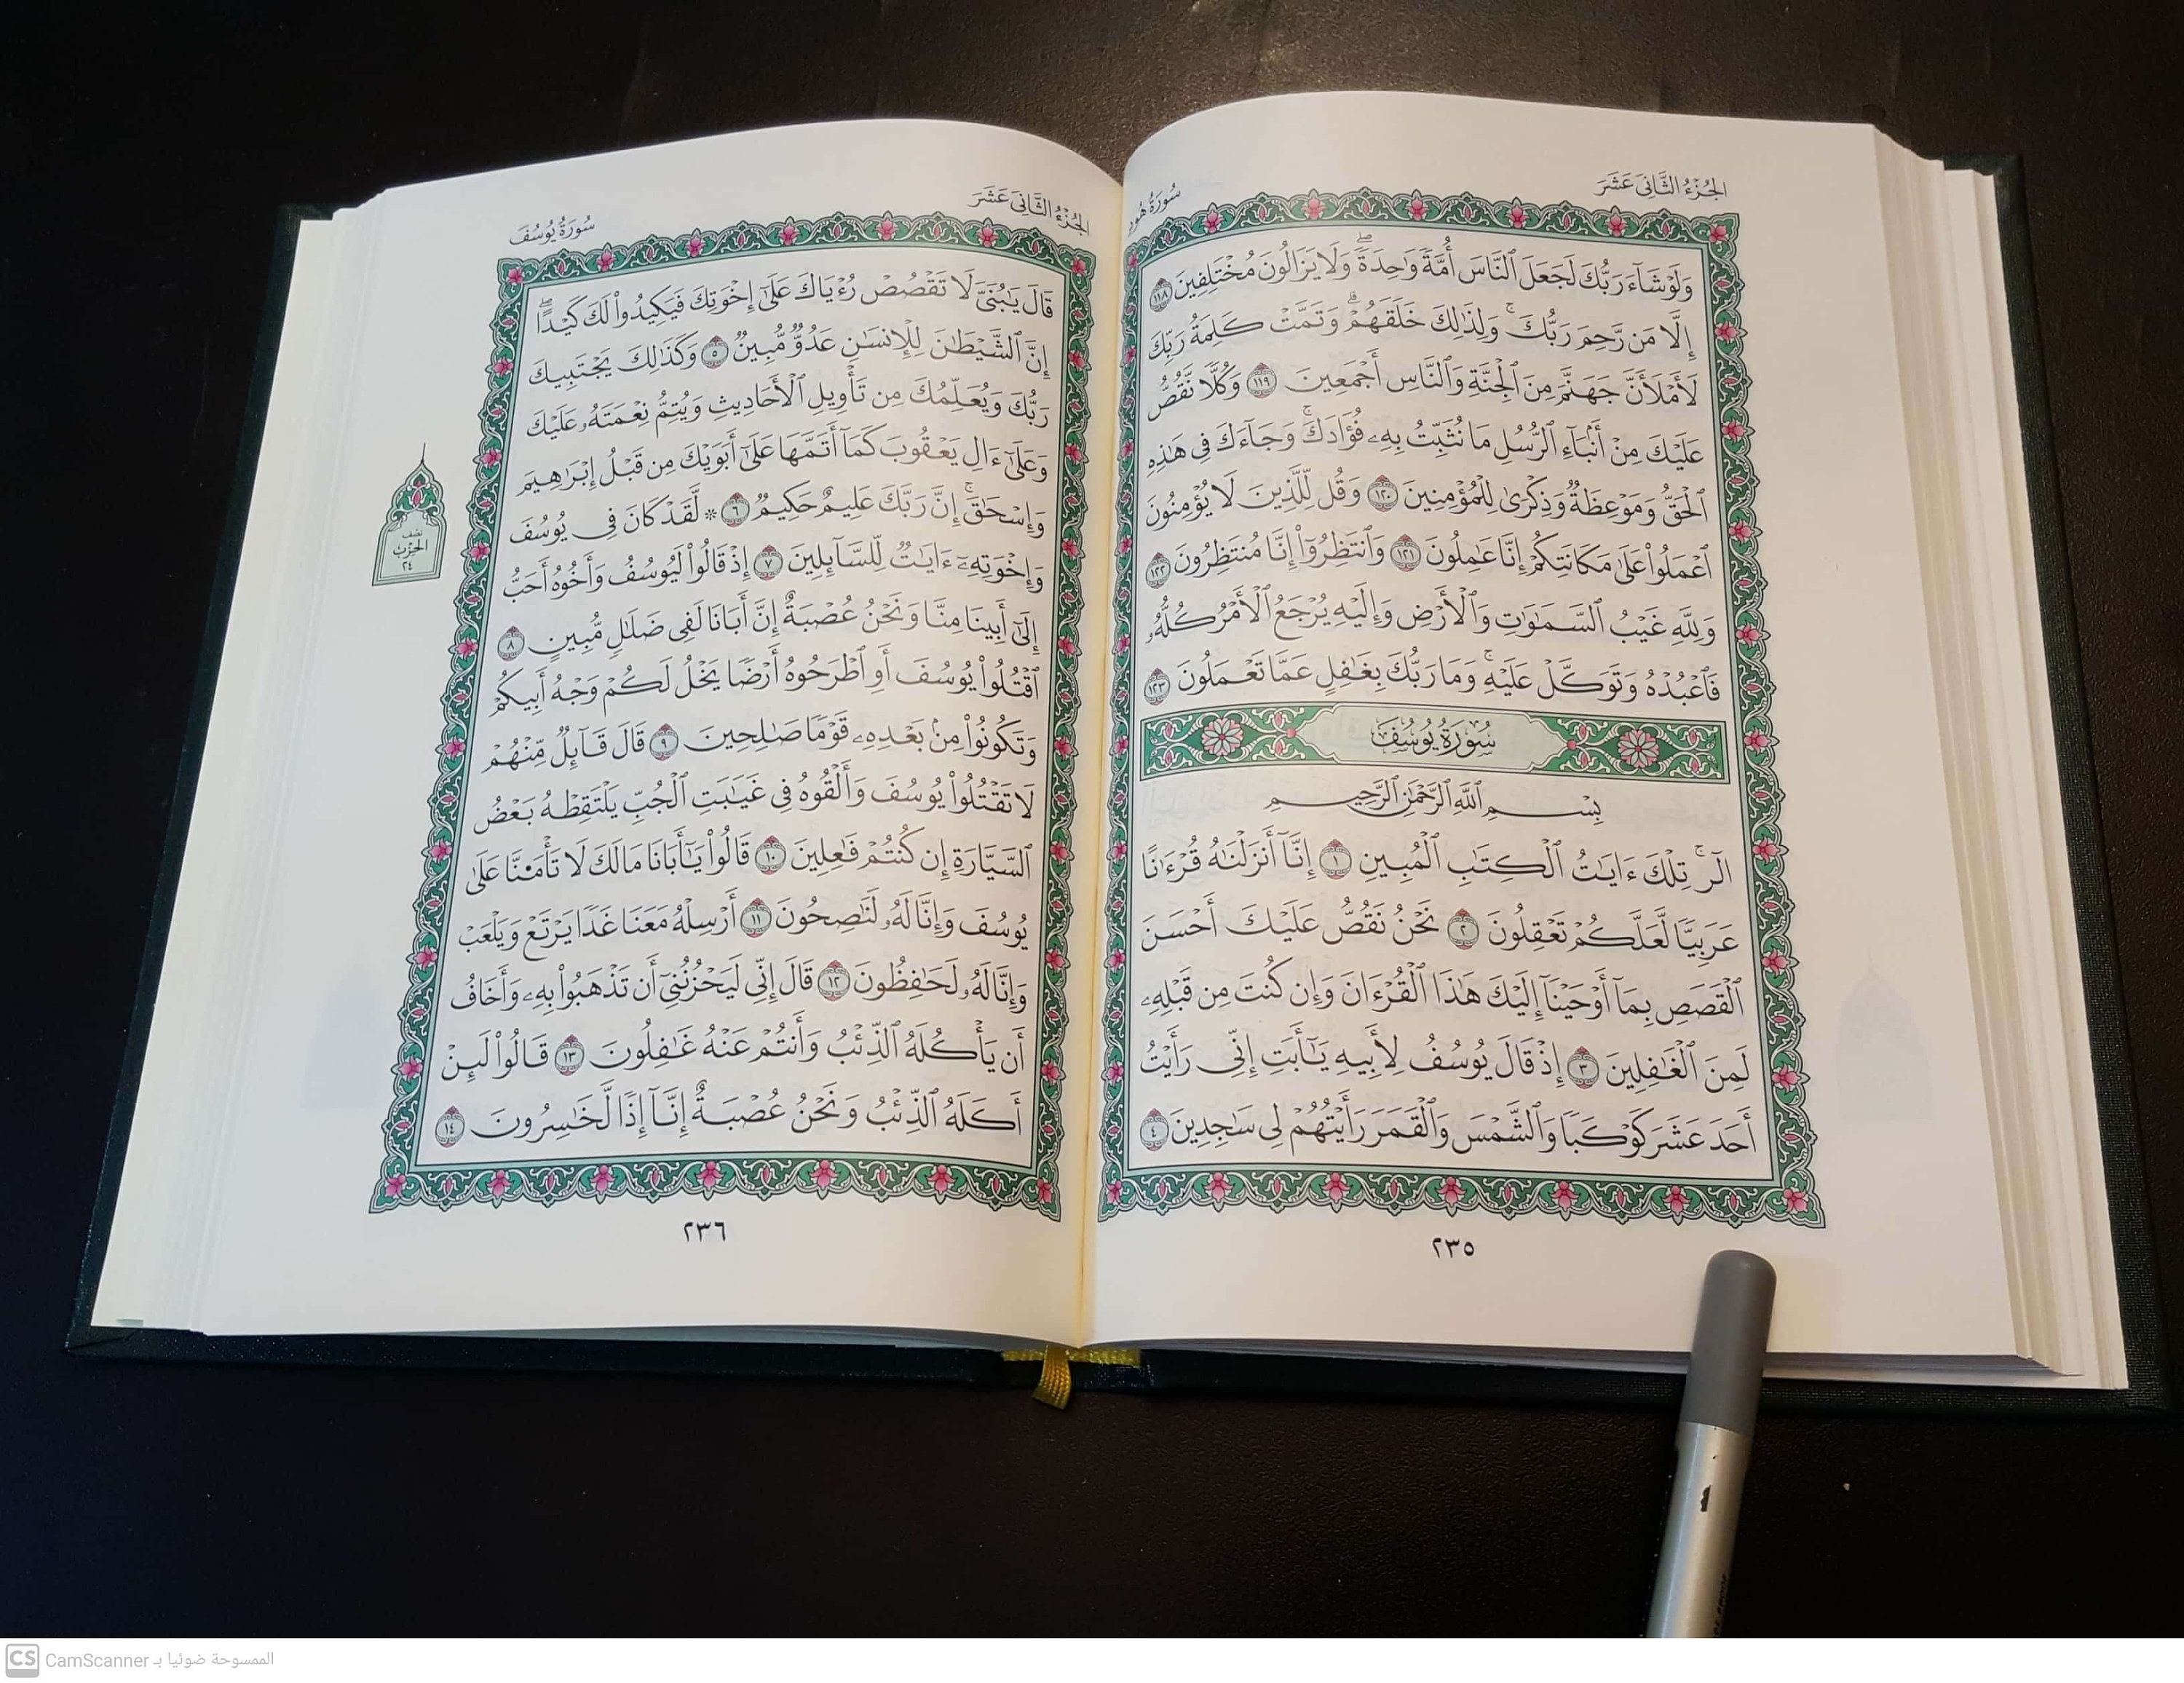 الجُزْءُ الثَّانِىَ عَشَرَ
سُورَةُ هُود
وَلَوْ شَآءَ رَبُّكَ لَجَعَلَ ٱلنَّاسَ أُمَّةً وَٰحِدَةً ۖ وَلَا يَزَالُونَ مُخْتَلِفِينَ ١١٨
إِلَّا مَن رَّحِمَ رَبُّكَ ۚ وَلِذَٰلِكَ خَلَقَهُمْ ۗ وَتَمَّتْ كَلِمَةُ رَبِّكَ
لَأَمْلَأَنَّ جَهَنَّمَ مِنَ ٱلْجِنَّةِ وَٱلنَّاسِ أَجْمَعِينَ ١١٩ وَكُلًّا نَّقُصُّ
عَلَيْكَ مِنْ أَنۢبَآءِ ٱلرُّسُلِ مَا نُثَبِّتُ بِهِۦ فُؤَادَكَ ۚ وَجَآءَكَ فِى هَٰذِهِ
ٱلْحَقُّ وَمَوْعِظَةٌ وَذِكْرَىٰ لِلْمُؤْمِنِينَ ١٢٠ وَقُل لِّلَّذِينَ لَا يُؤْمِنُونَ
ٱعْمَلُوا۟ عَلَىٰ مَكَانَتِكُمْ إِنَّا عَٰمِلُونَ ١٢١ وَٱنتَظِرُوٓا۟ إِنَّا مُنتَظِرُونَ ١٢٢
وَلِلَّهِ غَيْبُ ٱلسَّمَٰوَٰتِ وَٱلْأَرْضِ وَإِلَيْهِ يُرْجَعُ ٱلْأَمْرُ كُلُّهُۥ
فَٱعْبُدْهُ وَتَوَكَّلْ عَلَيْهِ ۚ وَمَا رَبُّكَ بِغَٰفِلٍ عَمَّا تَعْمَلُونَ ١٢٣
سُورَةُ يُوسُفَ
بِسْمِ ٱللَّهِ ٱلرَّحْمَٰنِ ٱلرَّحِيمِ
الٓر ۚ تِلْكَ ءَايَٰتُ ٱلْكِتَٰبِ ٱلْمُبِينِ ١ إِنَّآ أَنزَلْنَٰهُ قُرْءَٰنًا
عَرَبِيًّا لَّعَلَّكُمْ تَعْقِلُونَ ٢ نَحْنُ نَقُصُّ عَلَيْكَ أَحْسَنَ
ٱلْقَصَصِ بِمَآ أَوْحَيْنَآ إِلَيْكَ هَٰذَا ٱلْقُرْءَانَ وَإِن كُنتَ مِن قَبْلِهِۦ
لَمِنَ ٱلْغَٰفِلِينَ ٣ إِذْ قَالَ يُوسُفُ لِأَبِيهِ يَٰٓأَبَتِ إِنِّى رَأَيْتُ
أَحَدَ عَشَرَ كَوْكَبًا وَٱلشَّمْسَ وَٱلْقَمَرَ رَأَيْتُهُمْ لِى سَٰجِدِينَ ٤
٢٣٥
الجُزْءُ الثَّانِىَ عَشَرَ
سُورَةُ يُوسُفَ
قَالَ يَٰبُنَىَّ لَا تَقْصُصْ رُءْيَاكَ عَلَىٰٓ إِخْوَتِكَ فَيَكِيدُوا۟ لَكَ كَيْدًا ۖ
إِنَّ ٱلشَّيْطَٰنَ لِلْإِنسَٰنِ عَدُوٌّ مُّبِينٌ ٥ وَكَذَٰلِكَ يَجْتَبِيكَ
رَبُّكَ وَيُعَلِّمُكَ مِن تَأْوِيلِ ٱلْأَحَادِيثِ وَيُتِمُّ نِعْمَتَهُۥ عَلَيْكَ
وَعَلَىٰٓ ءَالِ يَعْقُوبَ كَمَآ أَتَمَّهَا عَلَىٰٓ أَبَوَيْكَ مِن قَبْلُ إِبْرَٰهِيمَ
وَإِسْحَٰقَ ۚ إِنَّ رَبَّكَ عَلِيمٌ حَكِيمٌ ٦ ۞ لَّقَدْ كَانَ فِى يُوسُفَ
وَإِخْوَتِهِۦٓ ءَايَٰتٌ لِّلسَّآئِلِينَ ٧ إِذْ قَالُوا۟ لَيُوسُفُ وَأَخُوهُ أَحَبُّ
إِلَىٰٓ أَبِينَا مِنَّا وَنَحْنُ عُصْبَةٌ إِنَّ أَبَانَا لَفِى ضَلَٰلٍ مُّبِينٍ ٨
ٱقْتُلُوا۟ يُوسُفَ أَوِ ٱطْرَحُوهُ أَرْضًا يَخْلُ لَكُمْ وَجْهُ أَبِيكُمْ
وَتَكُونُوا۟ مِنۢ بَعْدِهِۦ قَوْمًا صَٰلِحِينَ ٩ قَالَ قَآئِلٌ مِّنْهُمْ
لَا تَقْتُلُوا۟ يُوسُفَ وَأَلْقُوهُ فِى غَيَٰبَتِ ٱلْجُبِّ يَلْتَقِطْهُ بَعْضُ
ٱلسَّيَّارَةِ إِن كُنتُمْ فَٰعِلِينَ ١٠ قَالُوا۟ يَٰٓأَبَانَا مَالَكَ لَا تَأْمَ۫نَّا عَلَىٰ
يُوسُفَ وَإِنَّا لَهُۥ لَنَٰصِحُونَ ١١ أَرْسِلْهُ مَعَنَا غَدًا يَرْتَعْ وَيَلْعَبْ
وَإِنَّا لَهُۥ لَحَٰفِظُونَ ١٢ قَالَ إِنِّى لَيَحْزُنُنِىٓ أَن تَذْهَبُوا۟ بِهِۦ وَأَخَافُ
أَن يَأْكُلَهُ ٱلذِّئْبُ وَأَنتُمْ عَنْهُ غَٰفِلُونَ ١٣ قَالُوا۟ لَئِنْ
أَكَلَهُ ٱلذِّئْبُ وَنَحْنُ عُصْبَةٌ إِنَّآ إِذًا لَّخَٰسِرُونَ ١٤
نصف
الحزب
٢٤
٢٣٦
CS CamScanner الممسوحة ضوئيا بـ